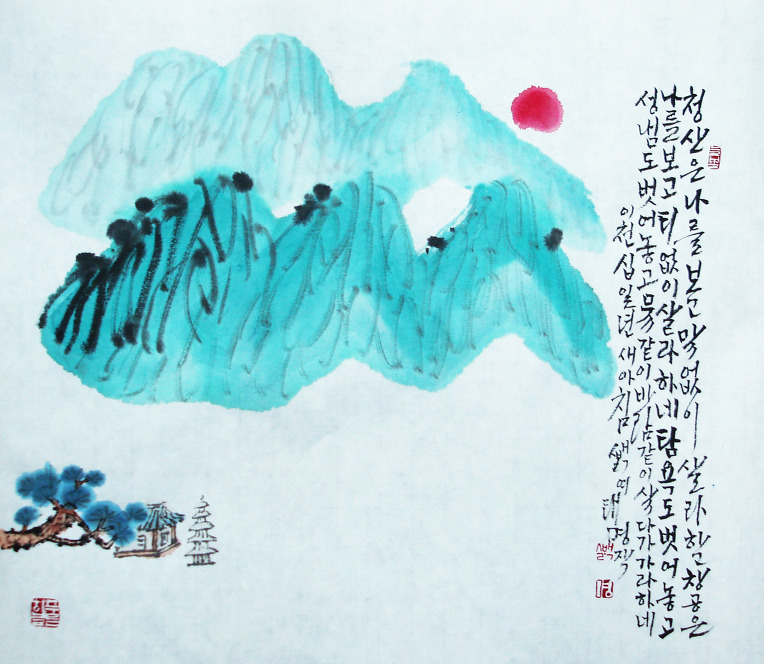 청산은 나를 보고 말없이 살라하고 창공은
나를 보고 티없이 살라하네 탐욕도 벗어놓고
성냄도 벗어놓고 물같이 바람같이 살다가 가라하네
이천십일년 새아침